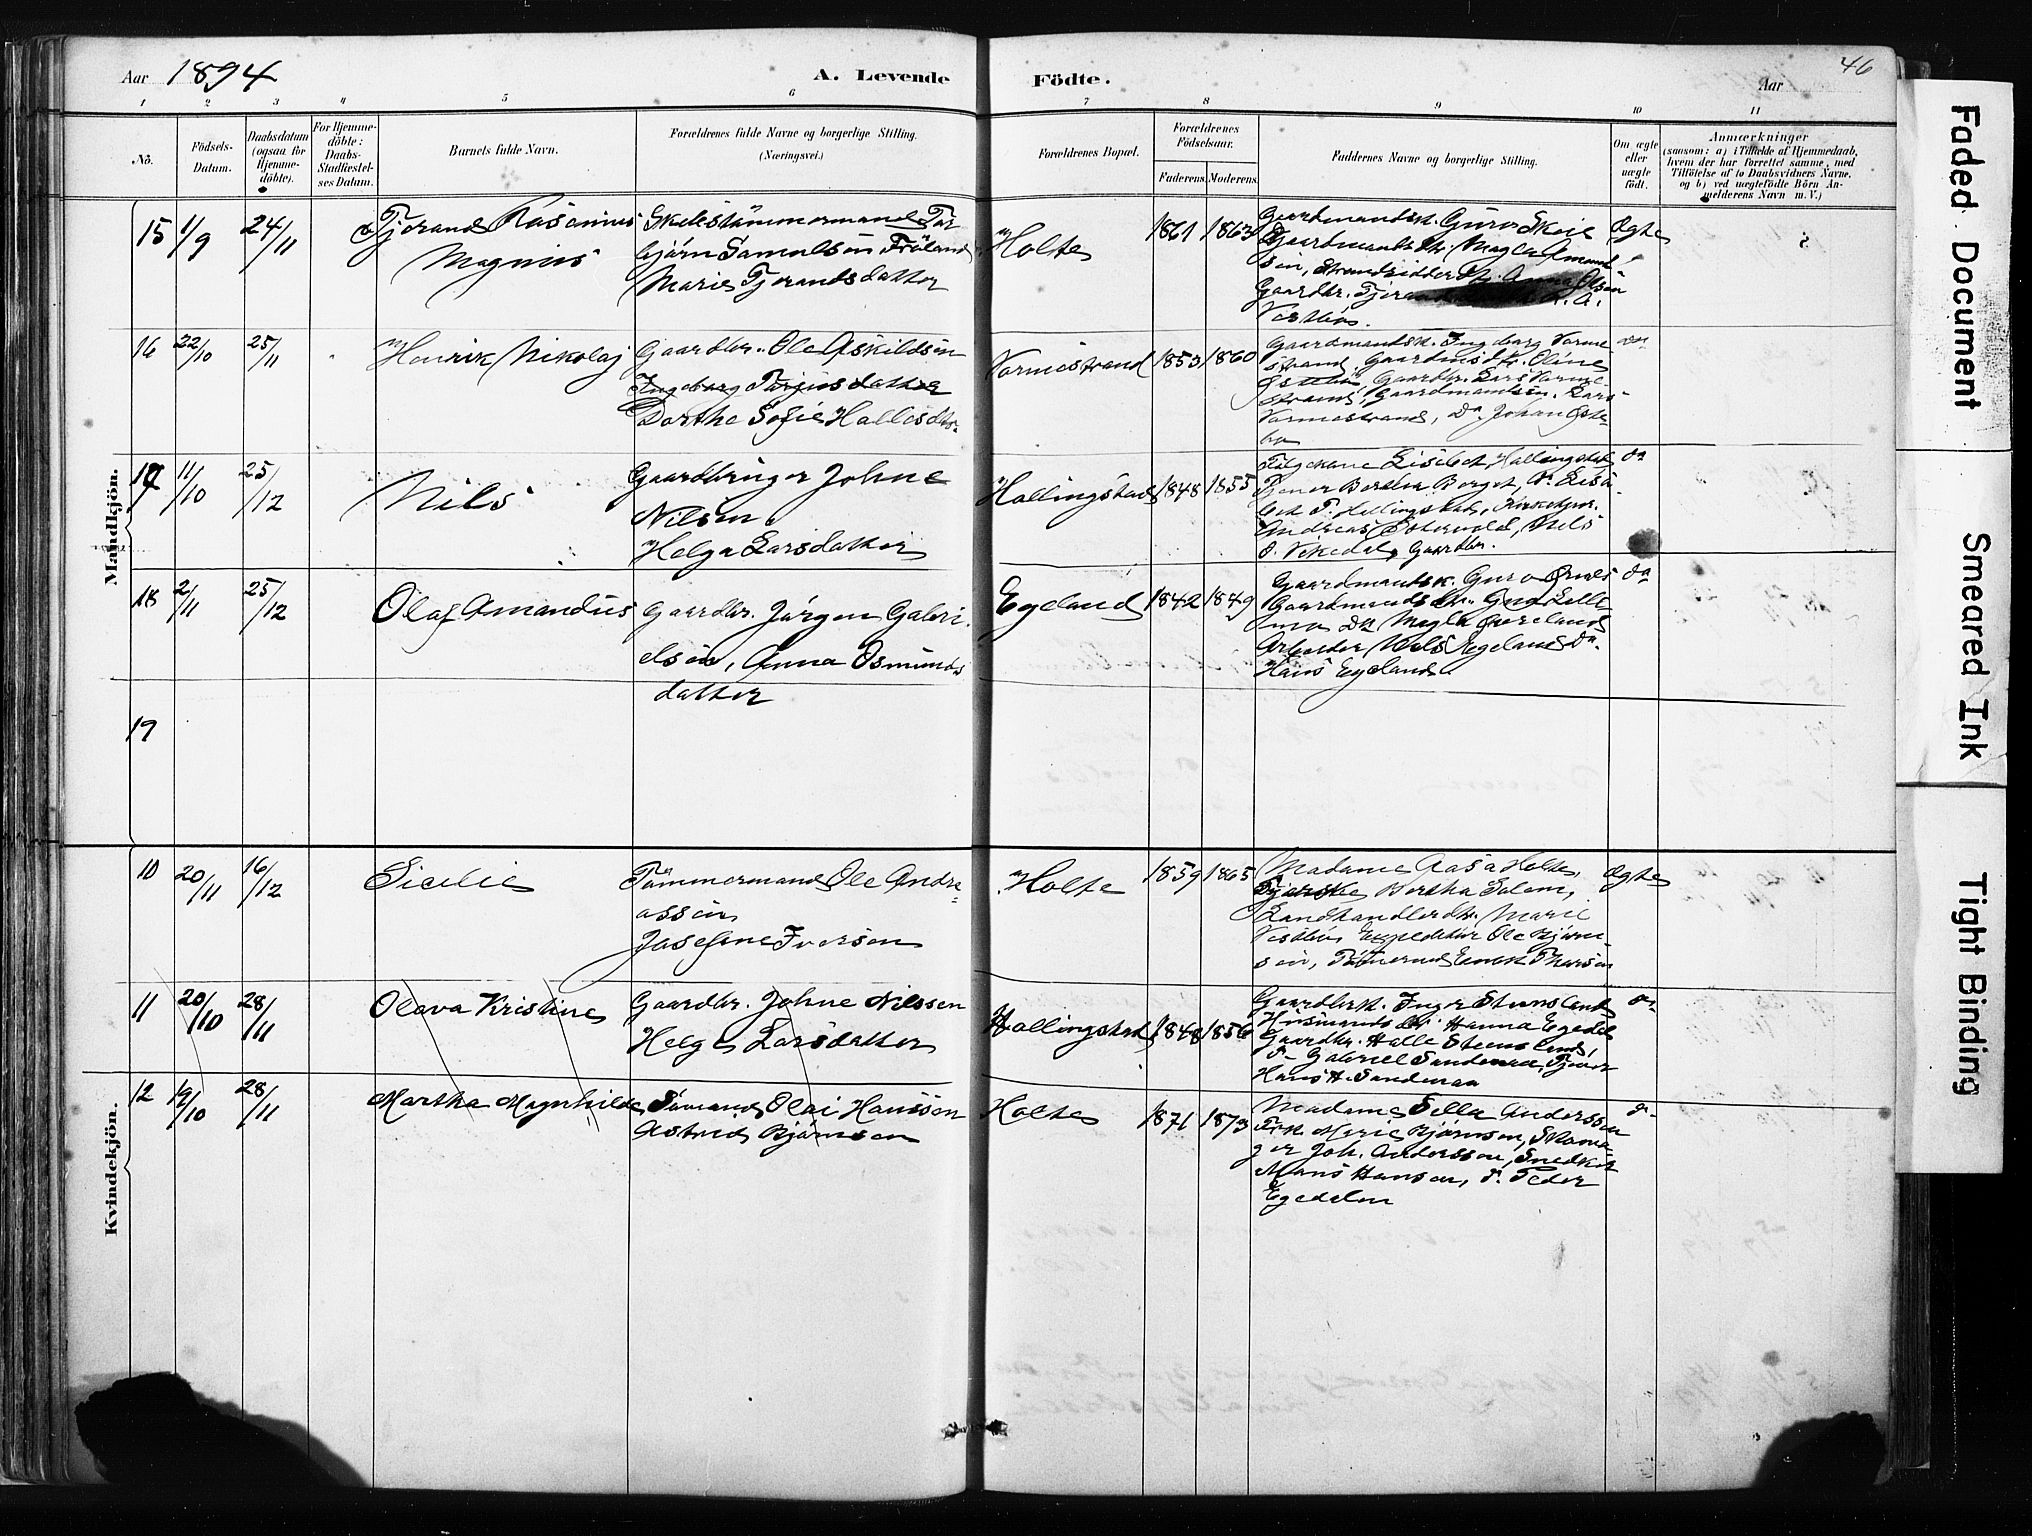 Aar 1894
A. Levende
Födte.
Aar
46
1 2 3 4 5 6 7 8 9 10 11
No.
Födsels-
Datum.
Daabsdatum
(ogsaa for
Hjemme-
döbte).
For Hjemme-
döbte:
Daabs-
Stadfæstel-
ses Datum.
Barnets fulde Navn.
Forældrenes fulde Navne og borgerlige Stilling.
(Næringsvei.)
Forældrenes Bopæl.
Forældrenes
Födselsaar.
Faderens. Moderens.
Faddernes Navne og borgerlige Stilling.
Om ægte
eller
uægte
født.
Anmærkninger
(saasom: a) i Tilfælde af Hjemmedaab,
hvem der har forrettet samme, med
Tilföielse af to Daabsvidners Navne,
og b) ved uægtefödte Börn An-
melderens Navn m. V.)
Mandkjön.
15 11/9 24/11
Tjerand Rasmus
Magnus
Skibstömmermand Tor
björn Samuelsen Fröland
Marie Tjerandsdatter
Holte
1861 1863
Gaardmandsk. Guro Skeie
Gaardmandsdtr. Magla Amund
sen,
Gaardbr. Tjerand
Vestbö.
Ægte
16 22/10 25/11
Henrik Nikolaj
Gaardbr. Ole Askildsen
Ingeborg Tarjusdatter
Dorthe Sofie Hallisdtr.
Vormestrand
1853 1860
Gaardmandsk. Ingeborg Vorme
strand, Gaardmdsk. Oline
Østebö, Gaardbr. Lars Vorme
strand, Gaardmandsön. Lars
Vormestrand, Do Johan Øste
bö
do
17 11/10 25/12
Nils
Gaardbruger Johne
Nilsen
Helga Larsdatter
Hallingstad
1848 1855
Lisebet Hallingstad
Tjener Bertha Berget, D. Lisa
bet T. Hallingstad, Kirkesanger
Andreas Nils
O. Vikedal, Gaardbr.
do
18 2/11 25/12
Olaf Amandus
Gaardbr. Jörgen Gabri
elsen, Anna Osmunds
datter
Egeland
1842 1849
Gaardmandsk. Guro Ørnes
Gaardmandsdtr.
Do Magla
Arbeider Nils Egeland Do.
Hans Egeland.
do
19
Kvindekjön.
10 20/11 16/12
Sicelie
Tömmermand Ole Andre
assen
Josefine Iversen
Holte
1859 1865
Madame Aasa Holte,
Bertha Salem,
Landhandlerdtr. Marie
Vestbö, Expeditör Ole Björn
sen, Tömermd Enok Tharsen
Ægte
11 20/10 28/11
Olava Kristine
Gaardbr. Johne Nilssen
Helga Larsdatter
Hallingstad
1848 1856
Gaardbrk. Inger Stensland
Husmandsdtr. Hanna Egedal
Gaardbr. Halle Stensland,
D- Gabriel Sandenaa, Tjener
Hans H. Sandenaa
do
12 19/10 28/11
Martha Magnhilde
Sömand Olai Hanssen
Astrid Björnsen
Holte
1871 1873
Madame Sella Anderssen
Frk. Marie Björnsen, Skoma
ger Joh. Anderssen, Snedker
Mons Hansen, D. Peder
Egedalen
do
Faded Document
Smeared Ink
Tight Binding